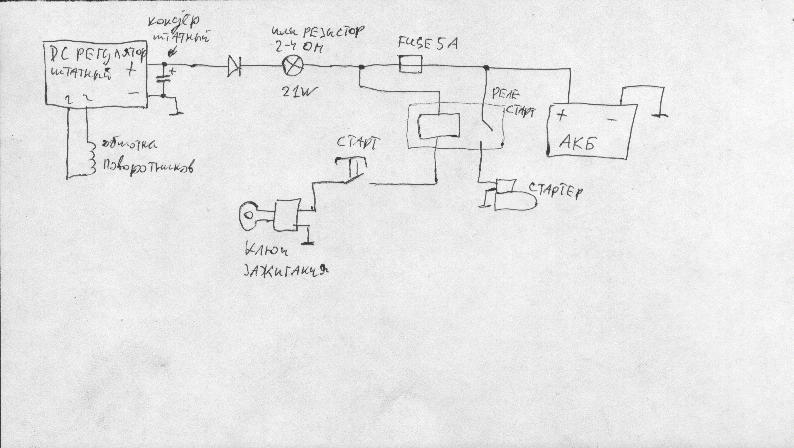 кондёр
штатный
или РЕЗИСТОР
2-4 ОМ
FUSE 5A
DC РЕГУЛЯТОР
штатный
+
-
~ ~
+
21W
РЕЛЕ
СТАРТ
+ -
АКБ
обмотка
поворотников
СТАРТ
СТАРТЕР
КЛЮЧ
ЗАЖИГАНИЯ